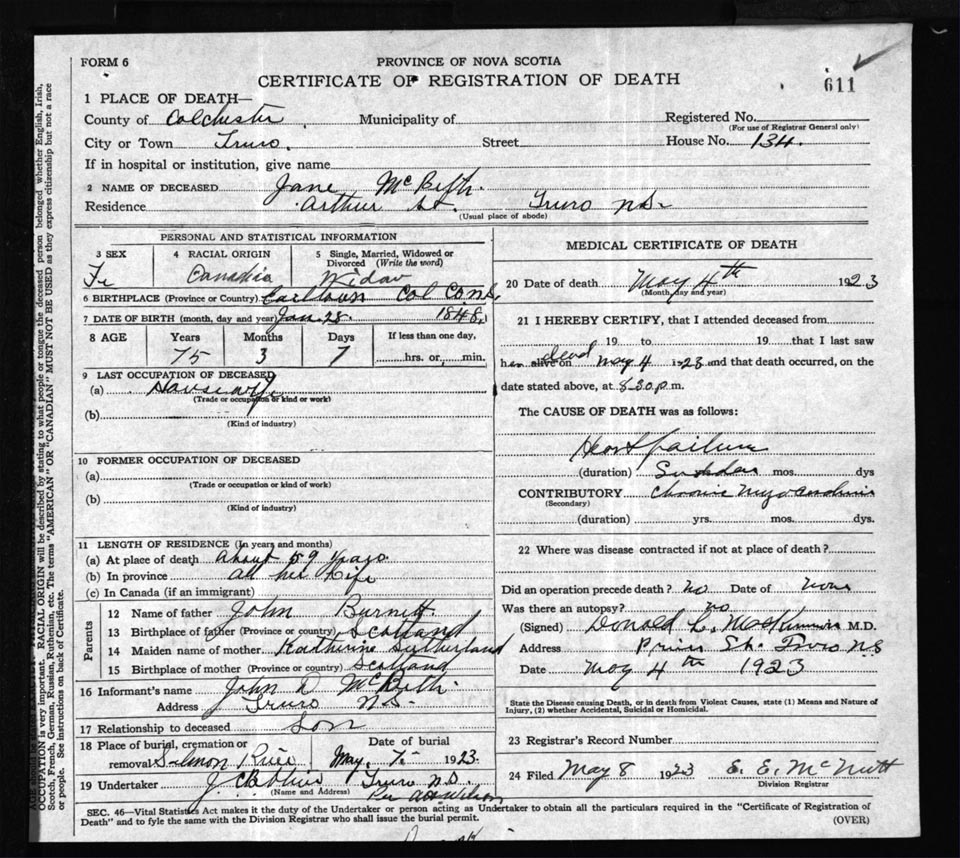 FORM 6
PROVINCE OF NOVA SCOTIA
CERTIFICATE OF REGISTRATION OF DEATH
611
1 PLACE OF DEATH—
County of Colchester Municipality of Registered No.
(For use of Registrar General only)
City or Town Truro. Street House No. 134.
If in hospital or institution, give name
2 NAME OF DECEASED Jane McBeth.
Residence Arthur St. Truro N.S.
(Usual place of abode)
PERSONAL AND STATISTICAL INFORMATION
3 SEX 4 RACIAL ORIGIN 5 Single, Married, Widowed or Divorced (Write the word)
Fe Canadia Widow
6 BIRTHPLACE (Province or Country) Col Co N.S.
7 DATE OF BIRTH (month, day and year) Jan. 28. 1848.
8 AGE Years Months Days If less than one day,
75 3 7 hrs. or min.
9 LAST OCCUPATION OF DECEASED
(a) Housewife
(Trade or occupation or kind or work)
(b)
(Kind of industry)
10 FORMER OCCUPATION OF DECEASED
(a)
(Trade or occupation or kind of work)
(b)
(Kind of industry)
11 LENGTH OF RESIDENCE (In years and months)
(a) At place of death about 59 years
(b) In province all her life
(c) In Canada (if an immigrant)
Parents
12 Name of father John Burnett.
13 Birthplace of father (Province or country) Scotland
14 Maiden name of mother Katherine Sutherland
15 Birthplace of mother (Province or country) Scotland
16 Informant's name John D McBeth.
Address Truro N.S.
17 Relationship to deceased Son
18 Place of burial, cremation or removal Salmon River Date of burial May. 7. 1923.
19 Undertaker Truro N.S.
(Name and Address) Per Wilson
MEDICAL CERTIFICATE OF DEATH
20 Date of death May 4th 1923
(Month, day and year)
21 I HEREBY CERTIFY, that I attended deceased from
19 to 19 that I last saw
her alive on dead May 4 1923 and that death occurred, on the
date stated above, at 8.30 p.m.
The CAUSE OF DEATH was as follows:
Heart failure
(duration) Sudden mos. dys
CONTRIBUTORY Chronic Myocarditis
(Secondary)
(duration) yrs. mos. dys.
22 Where was disease contracted if not at place of death?
Did an operation precede death? no Date of none
Was there an autopsy? no
(Signed) Donald M.D.
Address Prince St. Truro N.S
Date May 4th 1923
State the Disease causing Death, or in death from Violent Causes, state (1) Means and Nature of
Injury, (2) whether Accidental, Suicidal or Homicidal.
23 Registrar's Record Number
24 Filed May 8 1923 E. E. McNutt
Division Registrar
SEC. 46—Vital Statistics Act makes it the duty of the Undertaker or person acting as Undertaker to obtain all the particulars required in the "Certificate of Registration of
Death" and to fyle the same with the Division Registrar who shall issue the burial permit.
(OVER)
OCCUPATION is very important. RACIAL ORIGIN will be described by stating to what people or tongue the deceased person belonged whether English, Irish,
Scotch, French, German, Russian, Ruthenian, etc. The terms "AMERICAN" OR "CANADIAN" MUST NOT BE USED as they express citizenship but not a race
or people. See instructions on back of Certificate.